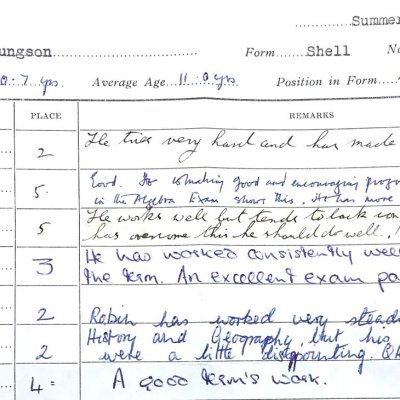 Summer
ungson Form Shell No
0:7 yrs. Average Age 11:0 yrs Position in Form
PLACE REMARKS
2 He tries very hard and has made
5. Good. He is making good and encouraging progr
in the Algebra Exam show this. He has more
5 He works well but tends to lack con
has overcome this he should do well.
3 He has worked consistently well
the term. An excellent exam pa
2 Robin has worked very steadi
History and Geography, but his
2 were a little disappointing.
4= A good term's work.